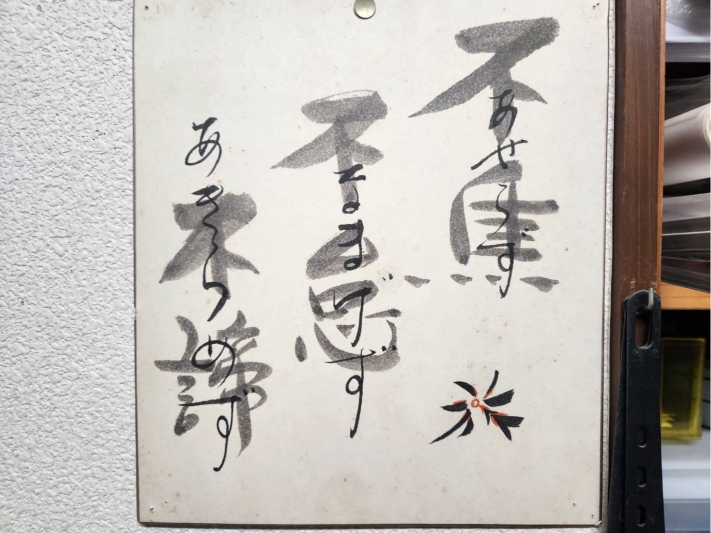 不焦
あせらず
不怠
なまけず
不諦
あきらめず